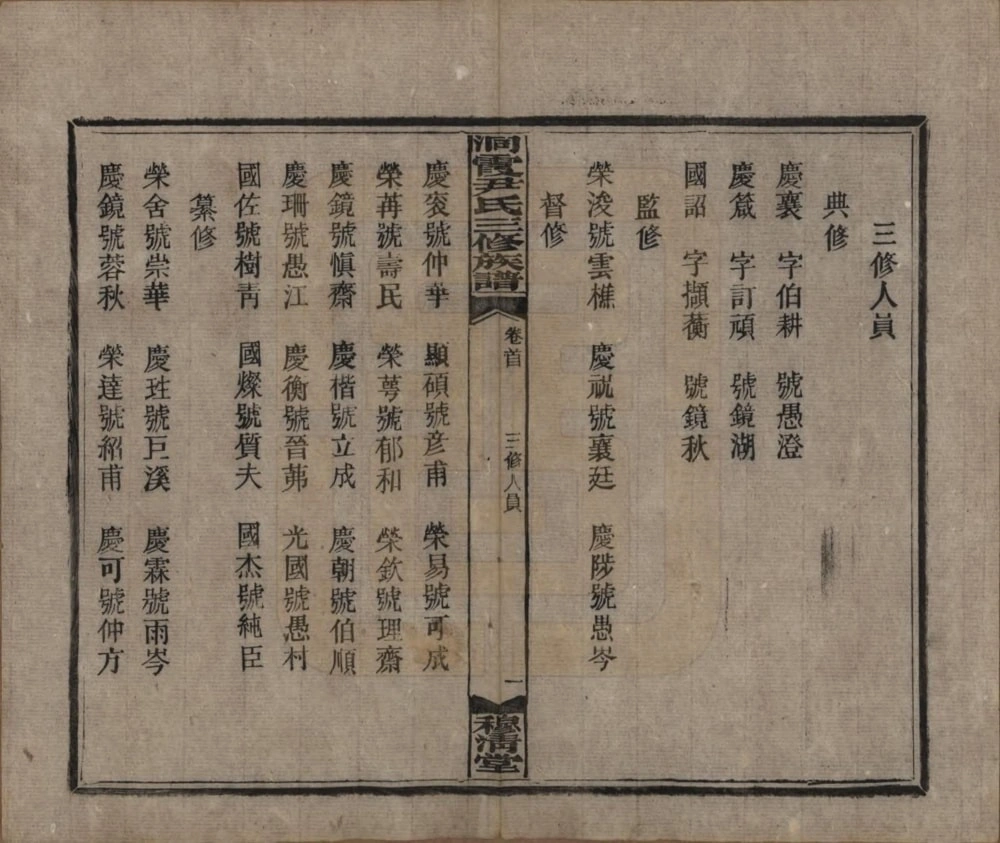 三修人員
典修
慶襄　字伯耕　號愚澄
慶箴　字訂頑　號鏡湖
國詔　字擷蘅　號鏡秋
監修
榮浚號雲樵　慶祝號襄廷　慶陟號愚岑
督修
洞霞尹氏三修族譜
卷首
三修人員
一
穆清堂
慶袞號仲華　顯碩號彥甫　榮易號可成
榮苒號壽民　榮萼號郁和　榮欽號理齋
慶鏡號慎齋　慶楷號立成　慶朝號伯順
慶珊號愚江　慶衡號晉茀　光國號愚村
國佐號樹青　國燦號質夫　國杰號純臣
纂修
榮舍號崇華　慶玨號巨溪　慶霖號雨岑
慶鏡號蓉秋　榮達號紹甫　慶可號仲方